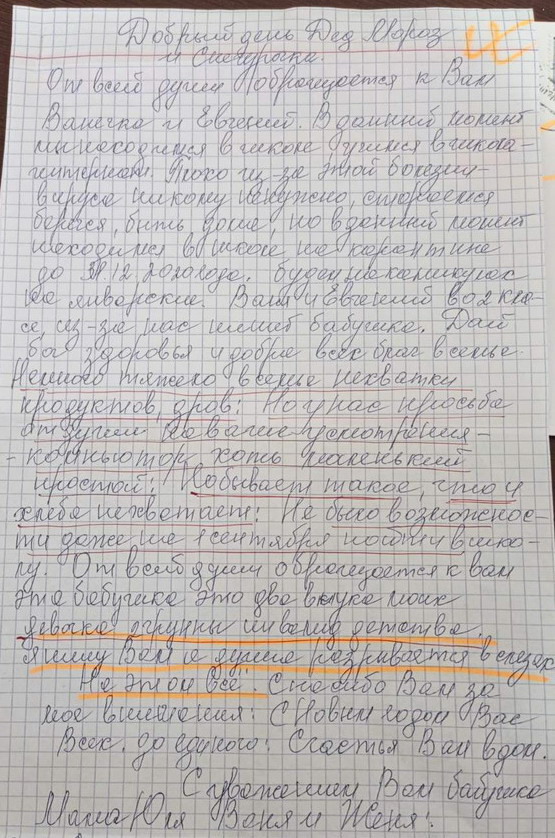 Добрый день Дед Мороз
и Снегурочка.
От всей души оброщается к Вам
Ванечка и Евгений. В данный момент
мы находимся в школе учимся в школа-
интернат. Плохо из-за этой болезни-
вируса никому ненужно, стараемся
беречся, быть дома, но в данный момент
находимся в школе на карантине
до 12.2020 года. будем на каникулах
на январские. Ваня и Евгений во 2 кла-
се, из-за нас пишит бабушка. Дай
бог здоровья и добра всех благ в семье.
Немного тяжело в семье нехватки
продуктов, дров: Но у нас просьба
от души на ваше усмотрения-
- компьютор хоть маленький
простой: Но бывает такое, что и
хлеба нехватает: Не было возможнос-
ти даже на 1 сентября пойти в шко-
лу. От всей души оброщается к вам
эта бабушка это два внука моих
двойка группы инвалид детства,
я пишу Вам а душа разрывается в слезах
На этом всё. Спасибо Вам за
мое внимания: С Новым годом Вас
Всех. до единого: Счастья Вам в дом.
С уважением Вам бабушка
Мама Юля Ваня и Женя: